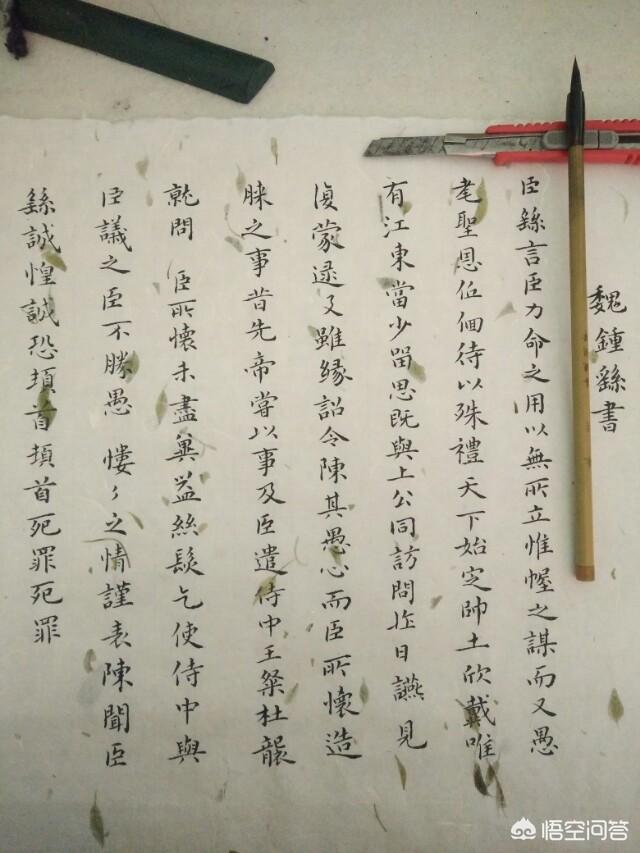 魏鍾繇書
臣繇言臣力命之用以無所立惟幄之謀而又愚
耄聖恩低佪待以殊禮天下始定帥土欣戴唯
有江東當少留思既與上公同訪問昨日讌見
復蒙逮及雖緣詔令陳其愚心而臣所懷造
膝之事昔先帝嘗以事及臣遣侍中王粲杜襲
就問 臣所懷未盡冀益絲髮乞使侍中與
臣議之臣不勝愚 慺々之情謹表陳聞臣
繇誠惶誠恐頓首頓首死罪死罪
悟空问答